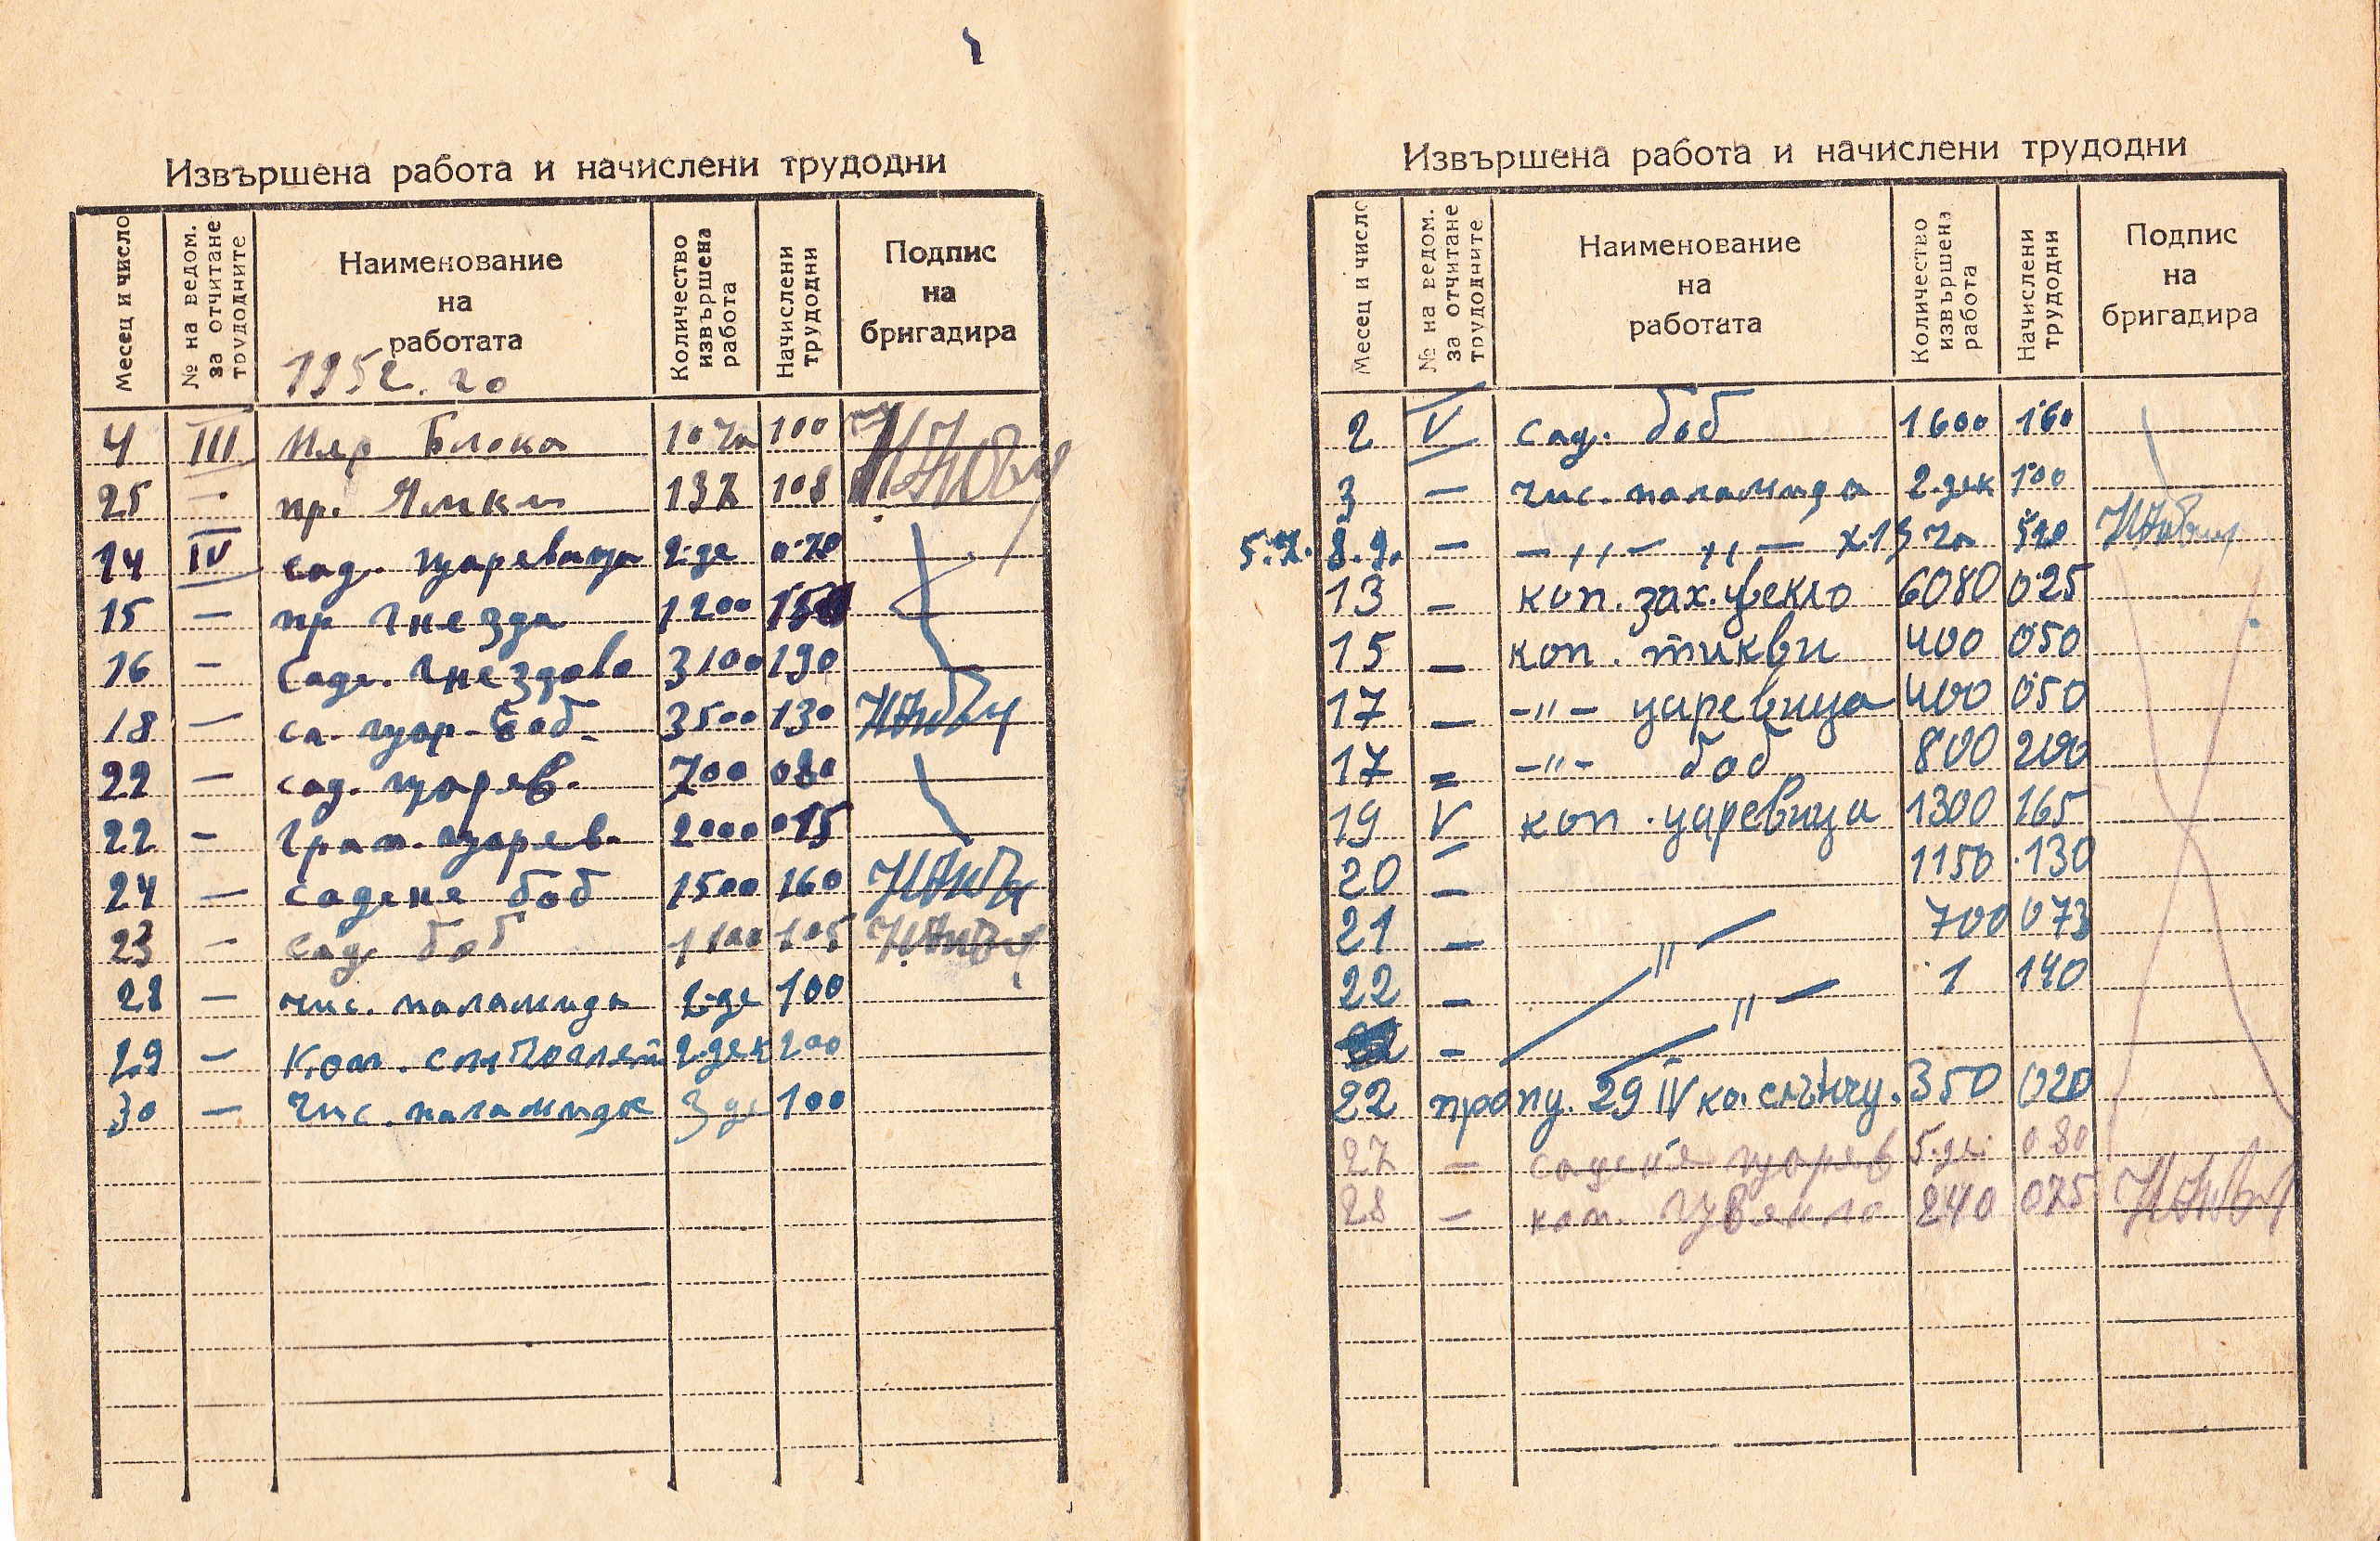 Извършена работа и начислени трудодни
Месец и число
№ на ведом. за отчитане трудодните
Наименование на работата
Количество извършена работа
Начислени трудодни
Подпис на бригадира
1952. го
4 III Блока 100
25 пр. Ямки 137 108
14 IV сад. царевица 2.де 0.70
15 — пр гнезда 1200
16 — Саде. гнездово 3100 190
18 — са. цар-боб. 3500 130
22 — сад. царев. 700 080
22 — царев. 2000 015
24 — садене боб 1500 160
23 — сад боб 1100 105
28 — чис. паламида 2.де 100
29 — Коп. 2.дек 200
30 — Чис. паламида 3 де 100
Извършена работа и начислени трудодни
Месец и число
№ на ведом. за отчитане трудодните
Наименование на работата
Количество извършена работа
Начислени трудодни
Подпис на бригадира
2 V сад. боб 1600 160
3 — чис. паламида 2.дек 100
5.7. 8.9. — — ,, — ,, —
13 — коп. зах. цвекло 6080 025
15 — коп. тикви 400 050
17 — -"- царевица 400 050
17 = -"- боб 800 200
19 V коп. царевица 1300 165
20 — 1150 130
21 — " 700 073
22 — " 1 140
22 пропу. 29 IV ко. слънчу. 350 020
27 — садене царев 5.де. 080
28 — коп. цвекло 240 075